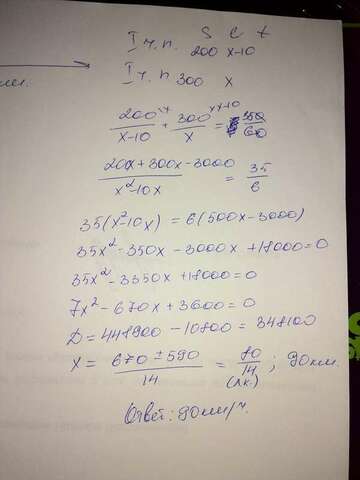 S v t
I ч.п. 200 x-10
II ч.п 300 x
200/x-10 + 300/x = 350/60
20x+300x-3000/x²-10x = 35/6
35(x²-10x) = 6(500x-3000)
35x²-350x-3000x+18000=0
35x²-3350x+18000=0
7x²-670x+3600=0
D=448900-10800=348100
x = 670±590/14 = 80/14 (п.к.) ; 90км.
Ответ: 90км/ч.